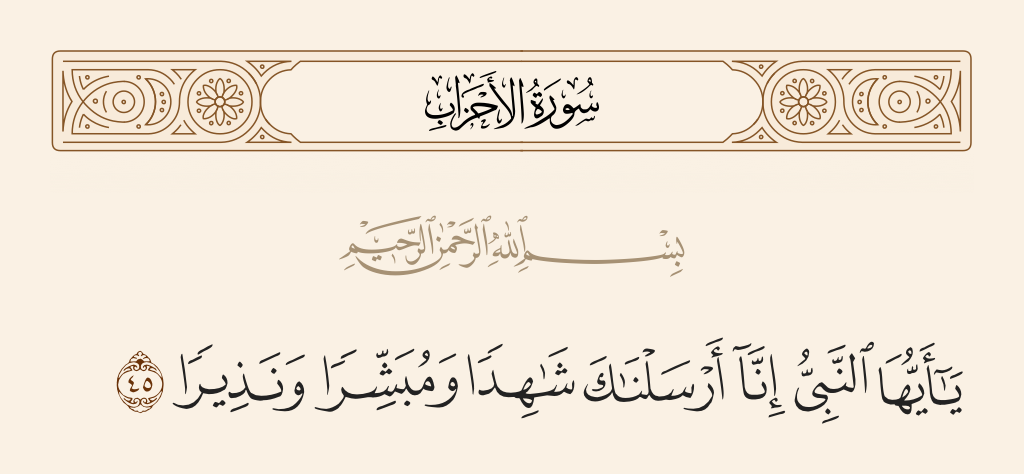 سُورَةُ الأَحْزَابِ
بِسْمِ ٱللَّهِ ٱلرَّحْمَٰنِ ٱلرَّحِيمِ
يَـٰٓأَيُّهَا ٱلنَّبِىُّ إِنَّآ أَرْسَلْنَـٰكَ شَـٰهِدًا وَمُبَشِّرًا وَنَذِيرًا ٤٥